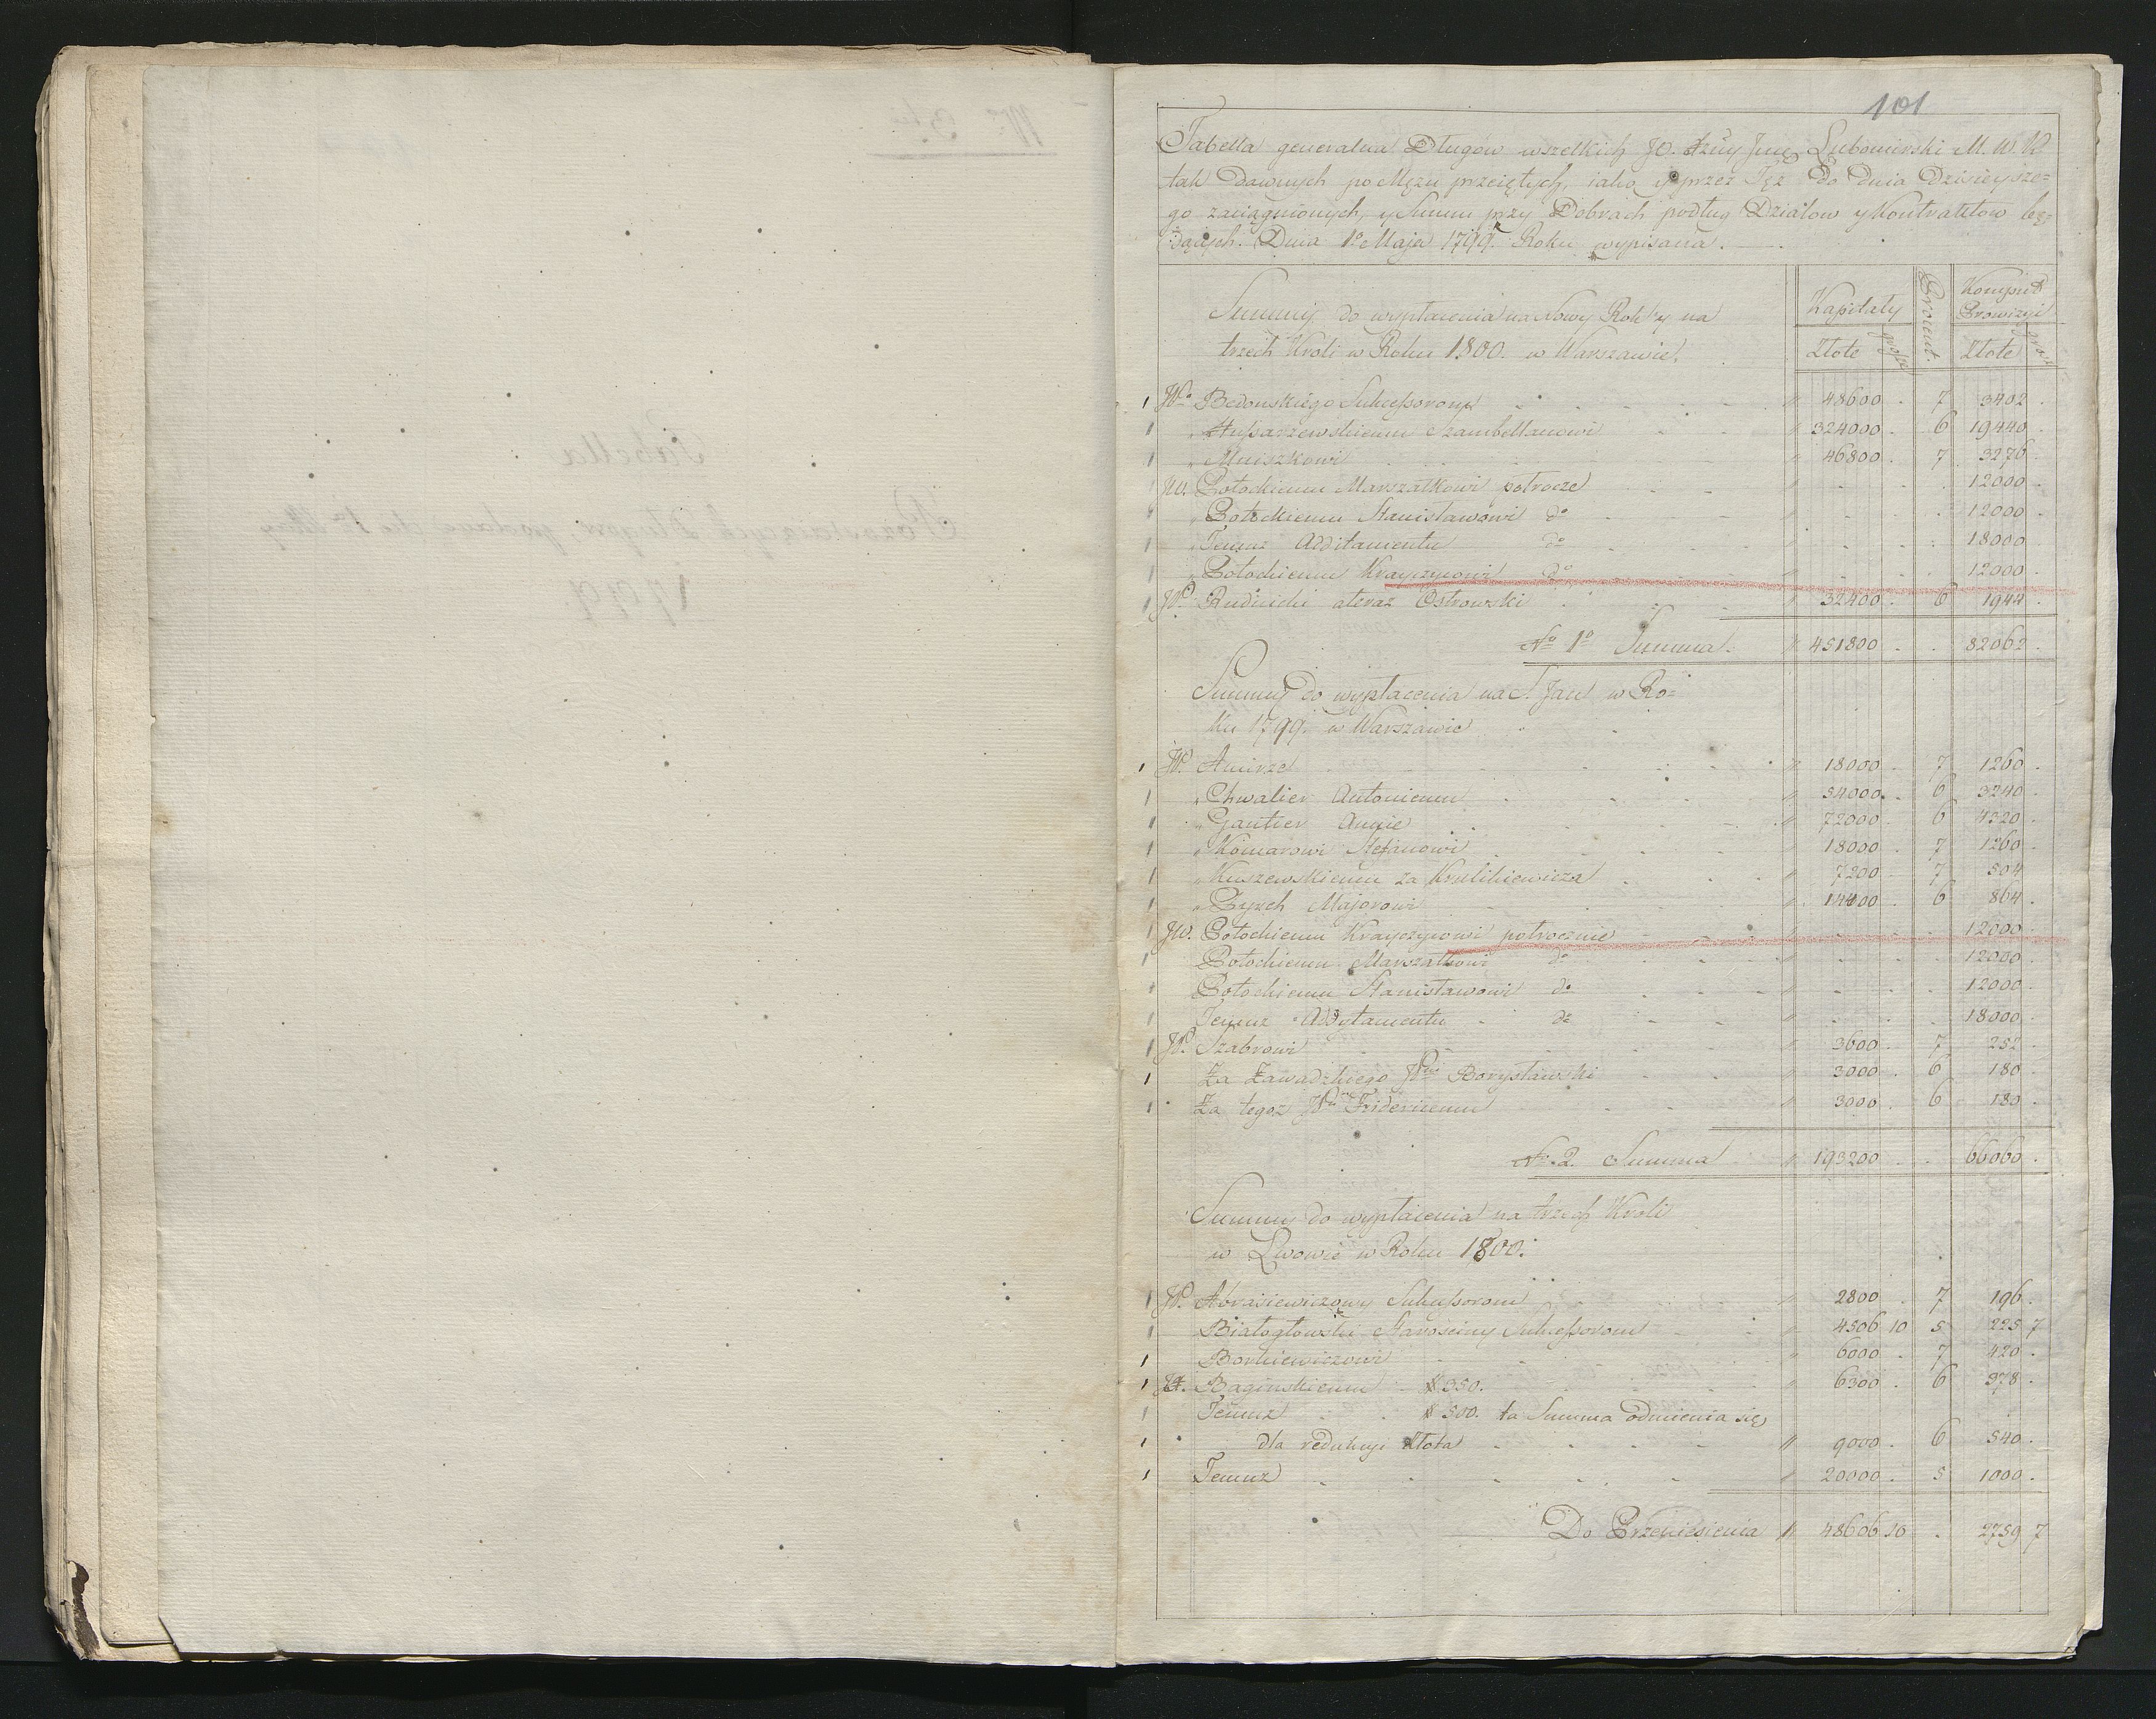 101
Tabella generalna Długow wszelkich JO. Xżny Jmci Lubomirski M. W. K.
tak dawnych po Mężu przeiętych, iako y przez Też do dnia dzisieysze=
go zaciągnionych, y Summ przy Dobrach podług Działow y Kontraktow bę=
dących. Dnia 1o Maja 1799. Roku wypisana.
Summy do wypłacenia na Nowy Rok y na
trzech Kroli w Roku 1800. w Warszawie.
Kapitały Procent. Komput Prowizyi
Złote grosze Złote grosze
1 W. Bedonskiego Sukcessorom " 48600 . 7 3402 .
1 " Hussarzewskiemu Szambellanowi " 324000 . 6 19440 .
1 " Mniszkowi " 46800 . 7 3276 .
1 JW. Potockiemu Marszałkowi połrocze " 12000 .
1 " Potockiemu Stanisławowi do 12000 .
1 " Temuż Additamentu do 18000
1 " Potockiemu Krayczycowi do " 12000 .
1 W. Rudnicki a teraz Ostrowski " 32400 . 6 1944 .
No 1o Summa. " 451800 . . 82062 .
Summy do wypłacenia na S. Jan w Ro=
ku 1799. w Warszawie
1 W. Amirze " 18000 . 7 1260 .
1 " Chwalier Antoniemu " 54000 . 6 3240 .
1 " Gautier Annie " 72000 . 6 4320 .
1 " Komarowi Stefanowi " 18000 . 7 1260 .
1 " Kuszewskiemu za Krulikiewicza " 7200 . 7 504
1 " Pyrch Majorowi " 14400 . 6 864 .
1 JW. Potockiemu Krayczycowi połrocznie " 12000 .
1 Potockiemu Marszałkowi do " 12000 .
1 Potockiemu Stanisławowi do " 12000 .
1 Temuż Addytamentu do " 18000 .
1 W. Szabrowi " 3600 . 7 252 .
1 Za Zawadzkiego Borysławski " 3000 . 6 180 .
1 Za tegoż Friderisemu " 3000 . 6 180 .
No. 2. Summa " 193200 . . 66060 .
Summy do wypłacenia na trzech Kroli
w Lwowie w Roku 1800.
1 W. Abrasiewiczowy Sukcessorom " 2800 . 7 196 .
1 Białogłowski Starosciny Sukcessorom " 4506 10 5 225 7
1 Borkiewiczowi " 6000 . 7 420 .
1 Baginskiemu # 350. " 6300 . 6 378 .
1 Temuż # 500. ta Summa odmienia się
1 dla redukcyi złota " 9000 . 6 540 .
1 Temuż " 20000 . 5 1000 .
Do Przeniesienia " 48606 10 . 2759 7